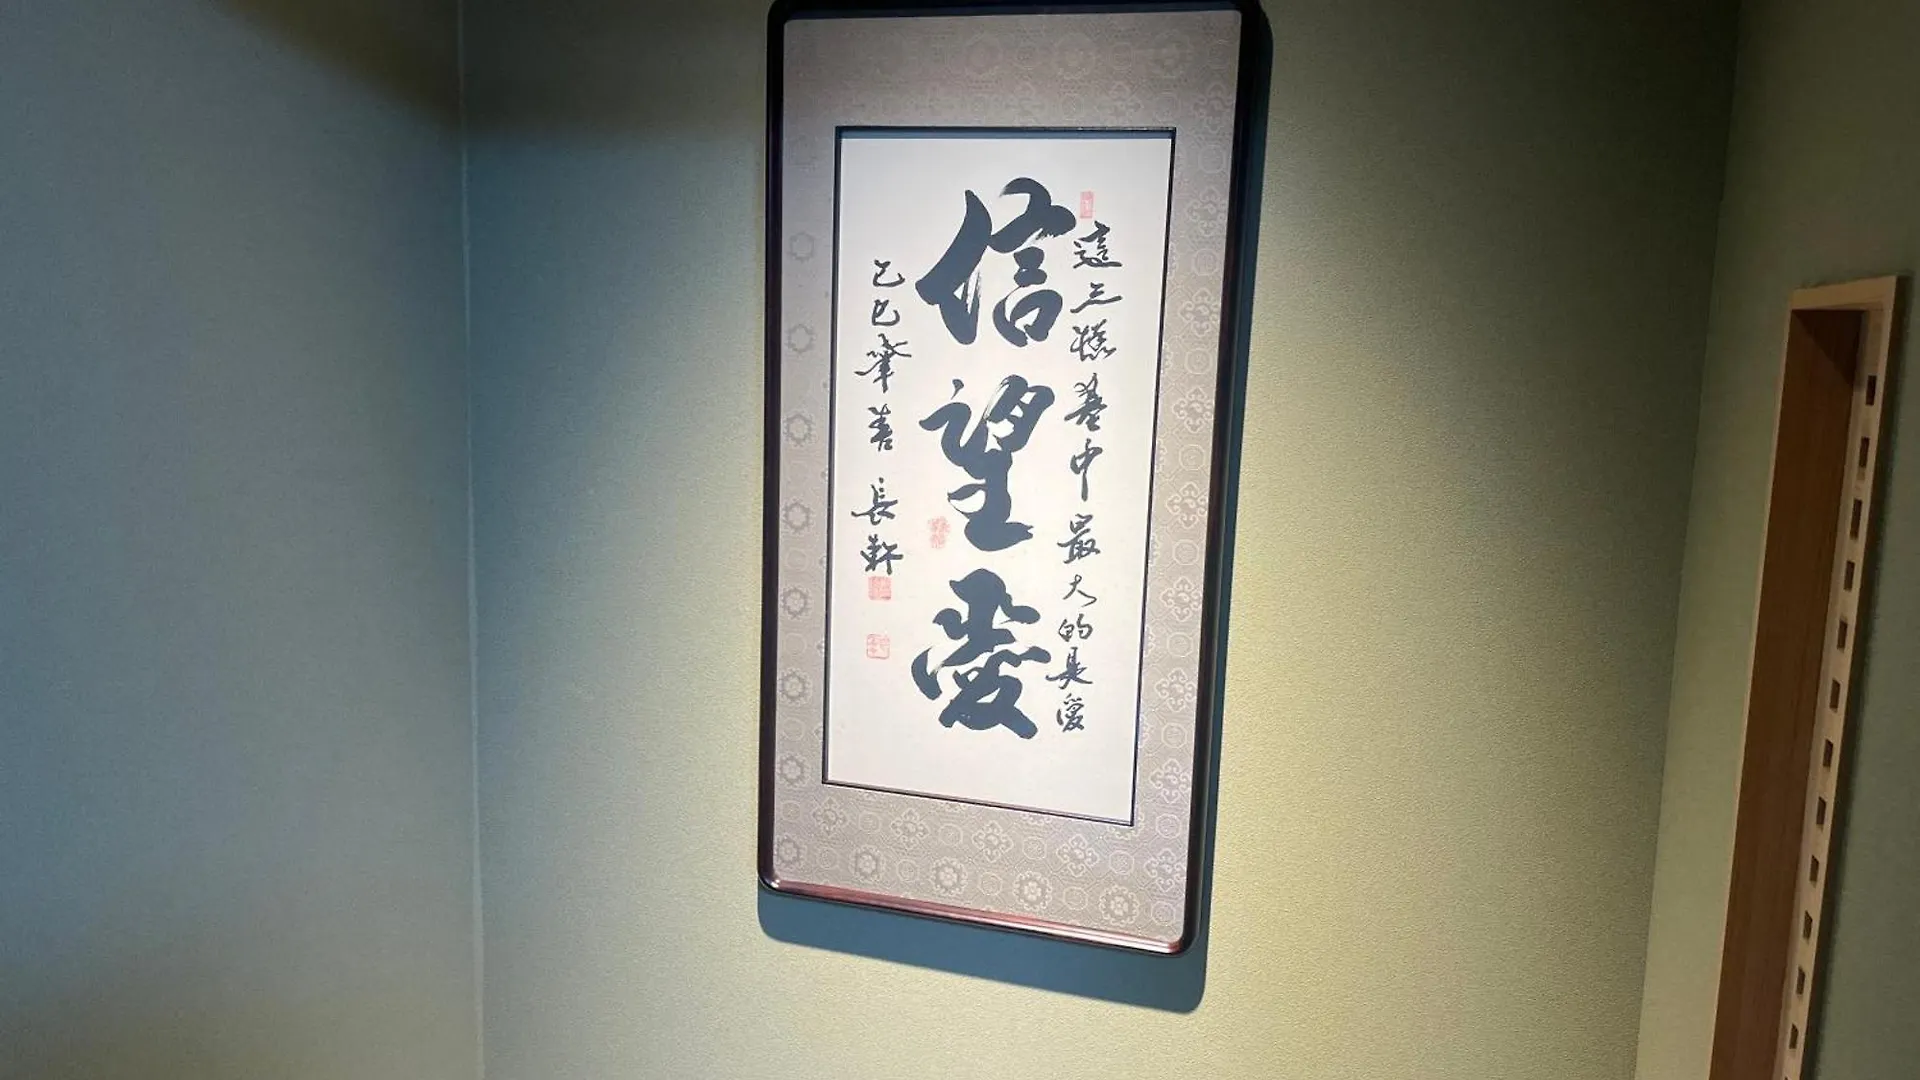 這三樣其中最大的是愛
信望愛
乙巳肇春 長軒